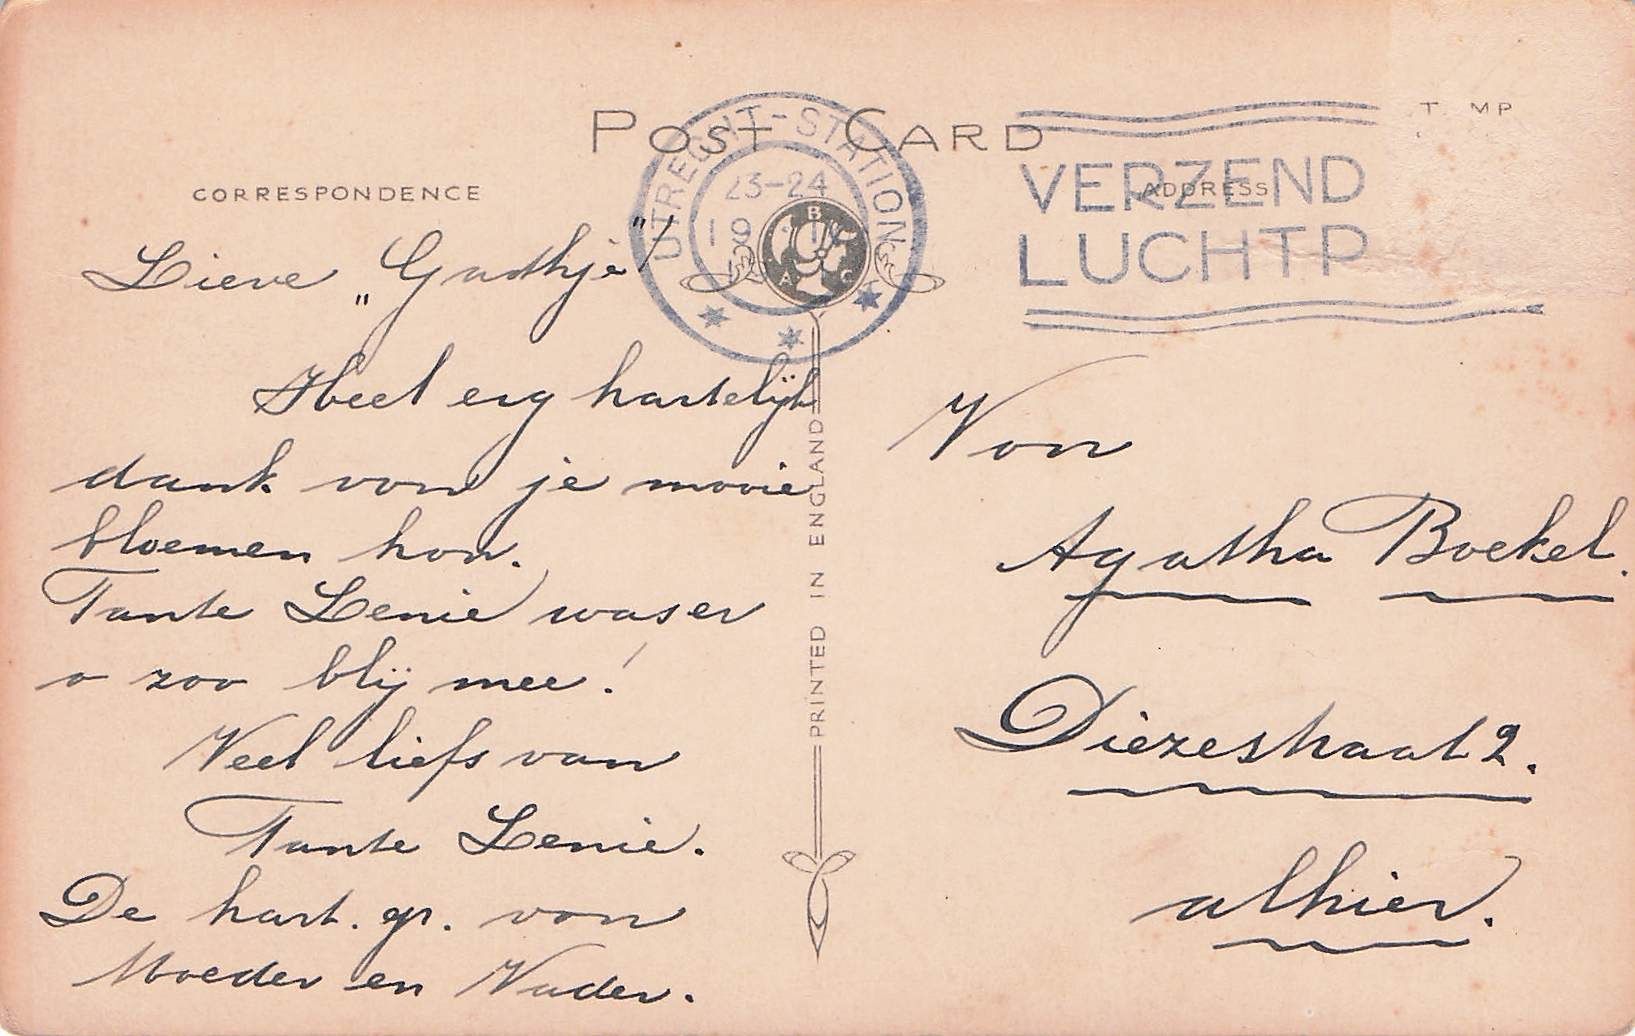 POST CARD
CORRESPONDENCE
ADDRESS
UTRECHT-STATION
23-24
VERZEND
LUCHTP
A B C
PRINTED IN ENGLAND
Lieve „Gaathje"!
Heel erg hartelijk
dank voor je mooie
bloemen hoor.
Tante Lenie was er
o zoo blij mee!
Veel liefs van
Tante Lenie.
De hart. gr. van
Moeder en Vader.
Voor
Agatha Boekel.
Diezestraat 2.
alhier.